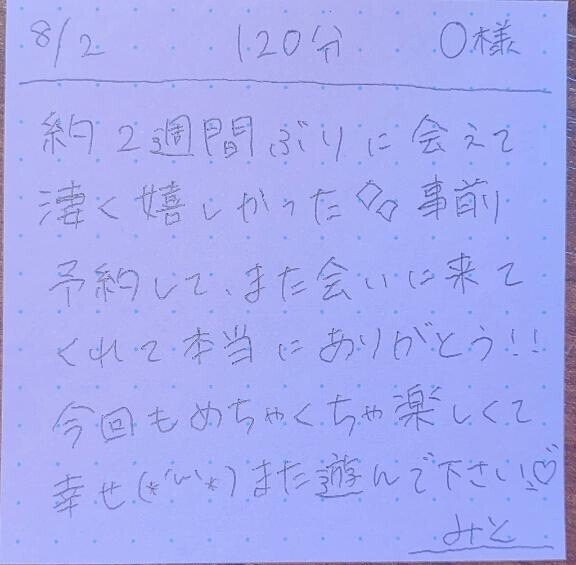 8/2 120分 〇様
約2週間ぶりに会えて
凄く嬉しかった◇◇事前
予約して、また会いに来て
くれて本当にありがとう!!
今回もめちゃくちゃ楽しくて
幸せ(*'ω'*)また遊んで下さい♡
みと